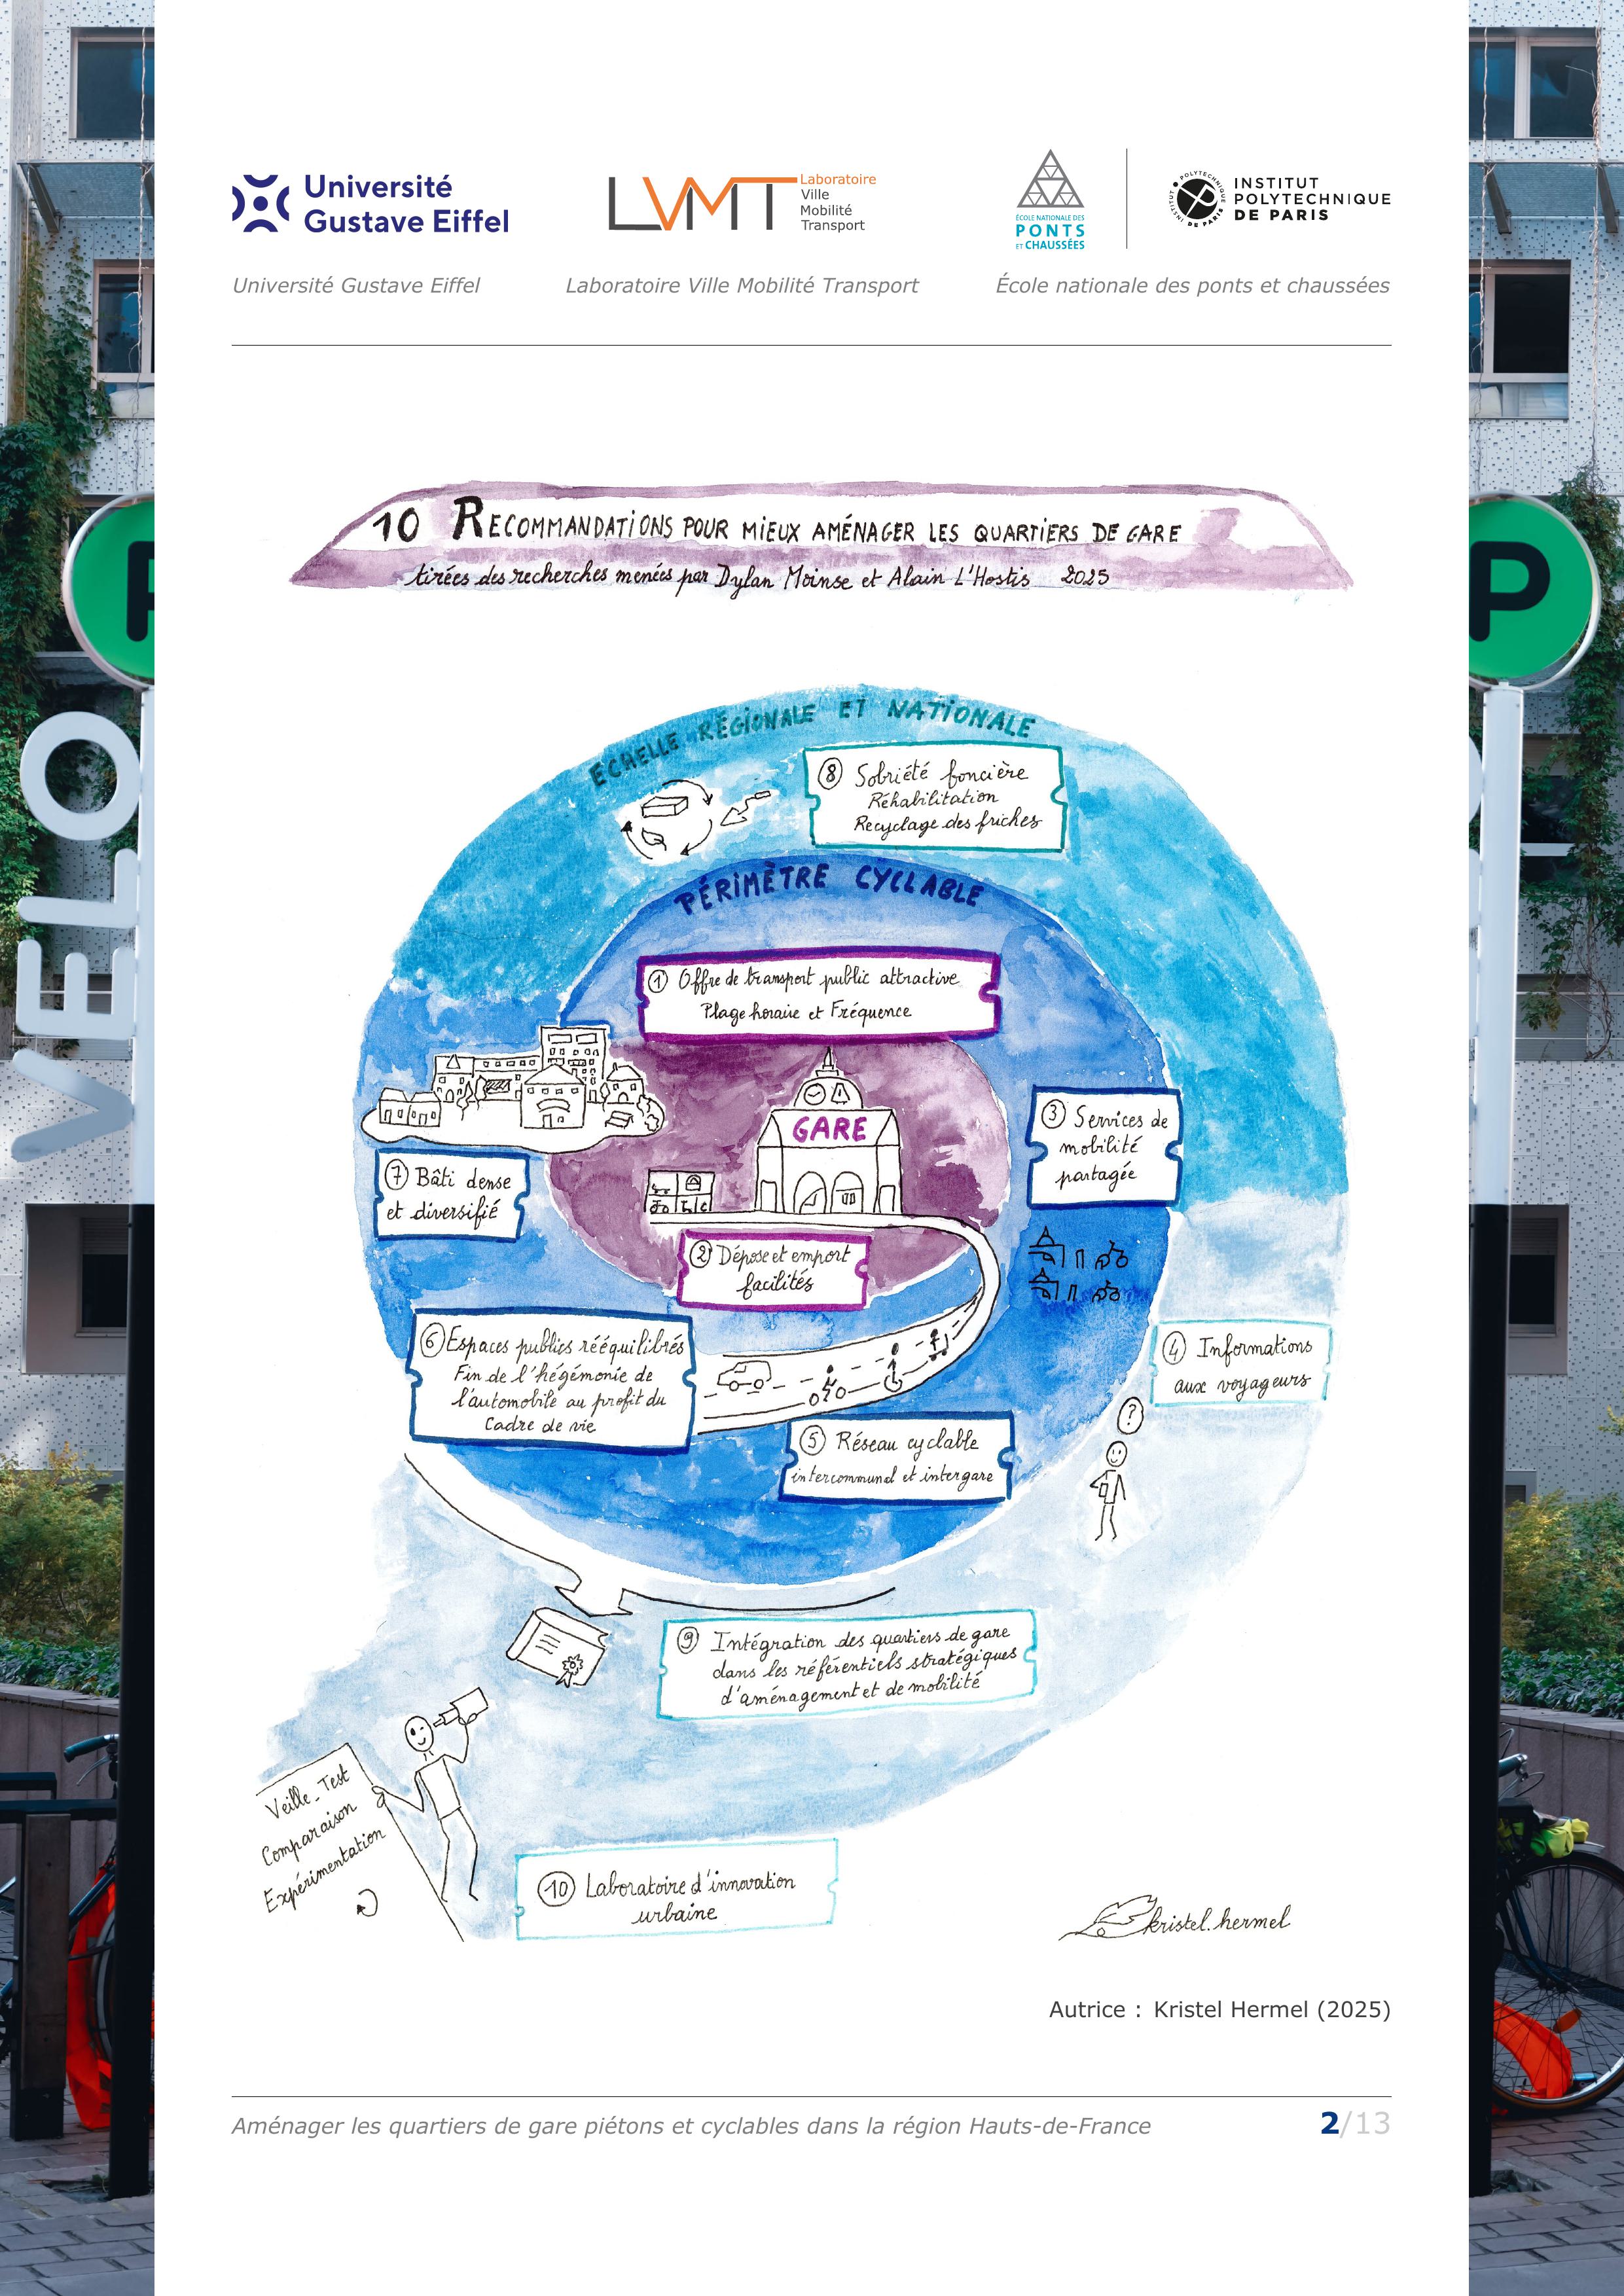 Université
Gustave Eiffel
LVMT
Laboratoire
Ville
Mobilité
Transport
ÉCOLE NATIONALE DES
PONTS
ET CHAUSSÉES
INSTITUT POLYTECHNIQUE DE PARIS
INSTITUT
POLYTECHNIQUE
DE PARIS
Université Gustave Eiffel
Laboratoire Ville Mobilité Transport
École nationale des ponts et chaussées
10 RECOMMANDATIONS POUR MIEUX AMÉNAGER LES QUARTIERS DE GARE
tirées des recherches menées par Dylan Moinse et Alain L'Hostis 2025
ECHELLE RÉGIONALE ET NATIONALE
8 Sobriété foncière
Réhabilitation
Recyclage des friches
PÉRIMÈTRE CYCLABLE
1 Offre de transport public attractive
Plage horaire et Fréquence
GARE
3 Services de
mobilité
partagée
7 Bâti dense
et diversifié
2 Dépose et emport
facilités
6 Espaces publics rééquilibrés
Fin de l'hégémonie de
l'automobile au profit du
Cadre de vie
4 Informations
aux voyageurs
?
5 Réseau cyclable
intercommunal et intergare
9 Intégration des quartiers de gare
dans les référentiels stratégiques
d'aménagement et de mobilité
Veille_Test
Comparaison
Expérimentation
10 Laboratoire d'innovation
urbaine
kristel.hermel
Autrice : Kristel Hermel (2025)
Aménager les quartiers de gare piétons et cyclables dans la région Hauts-de-France
2/13
P
VELO
P